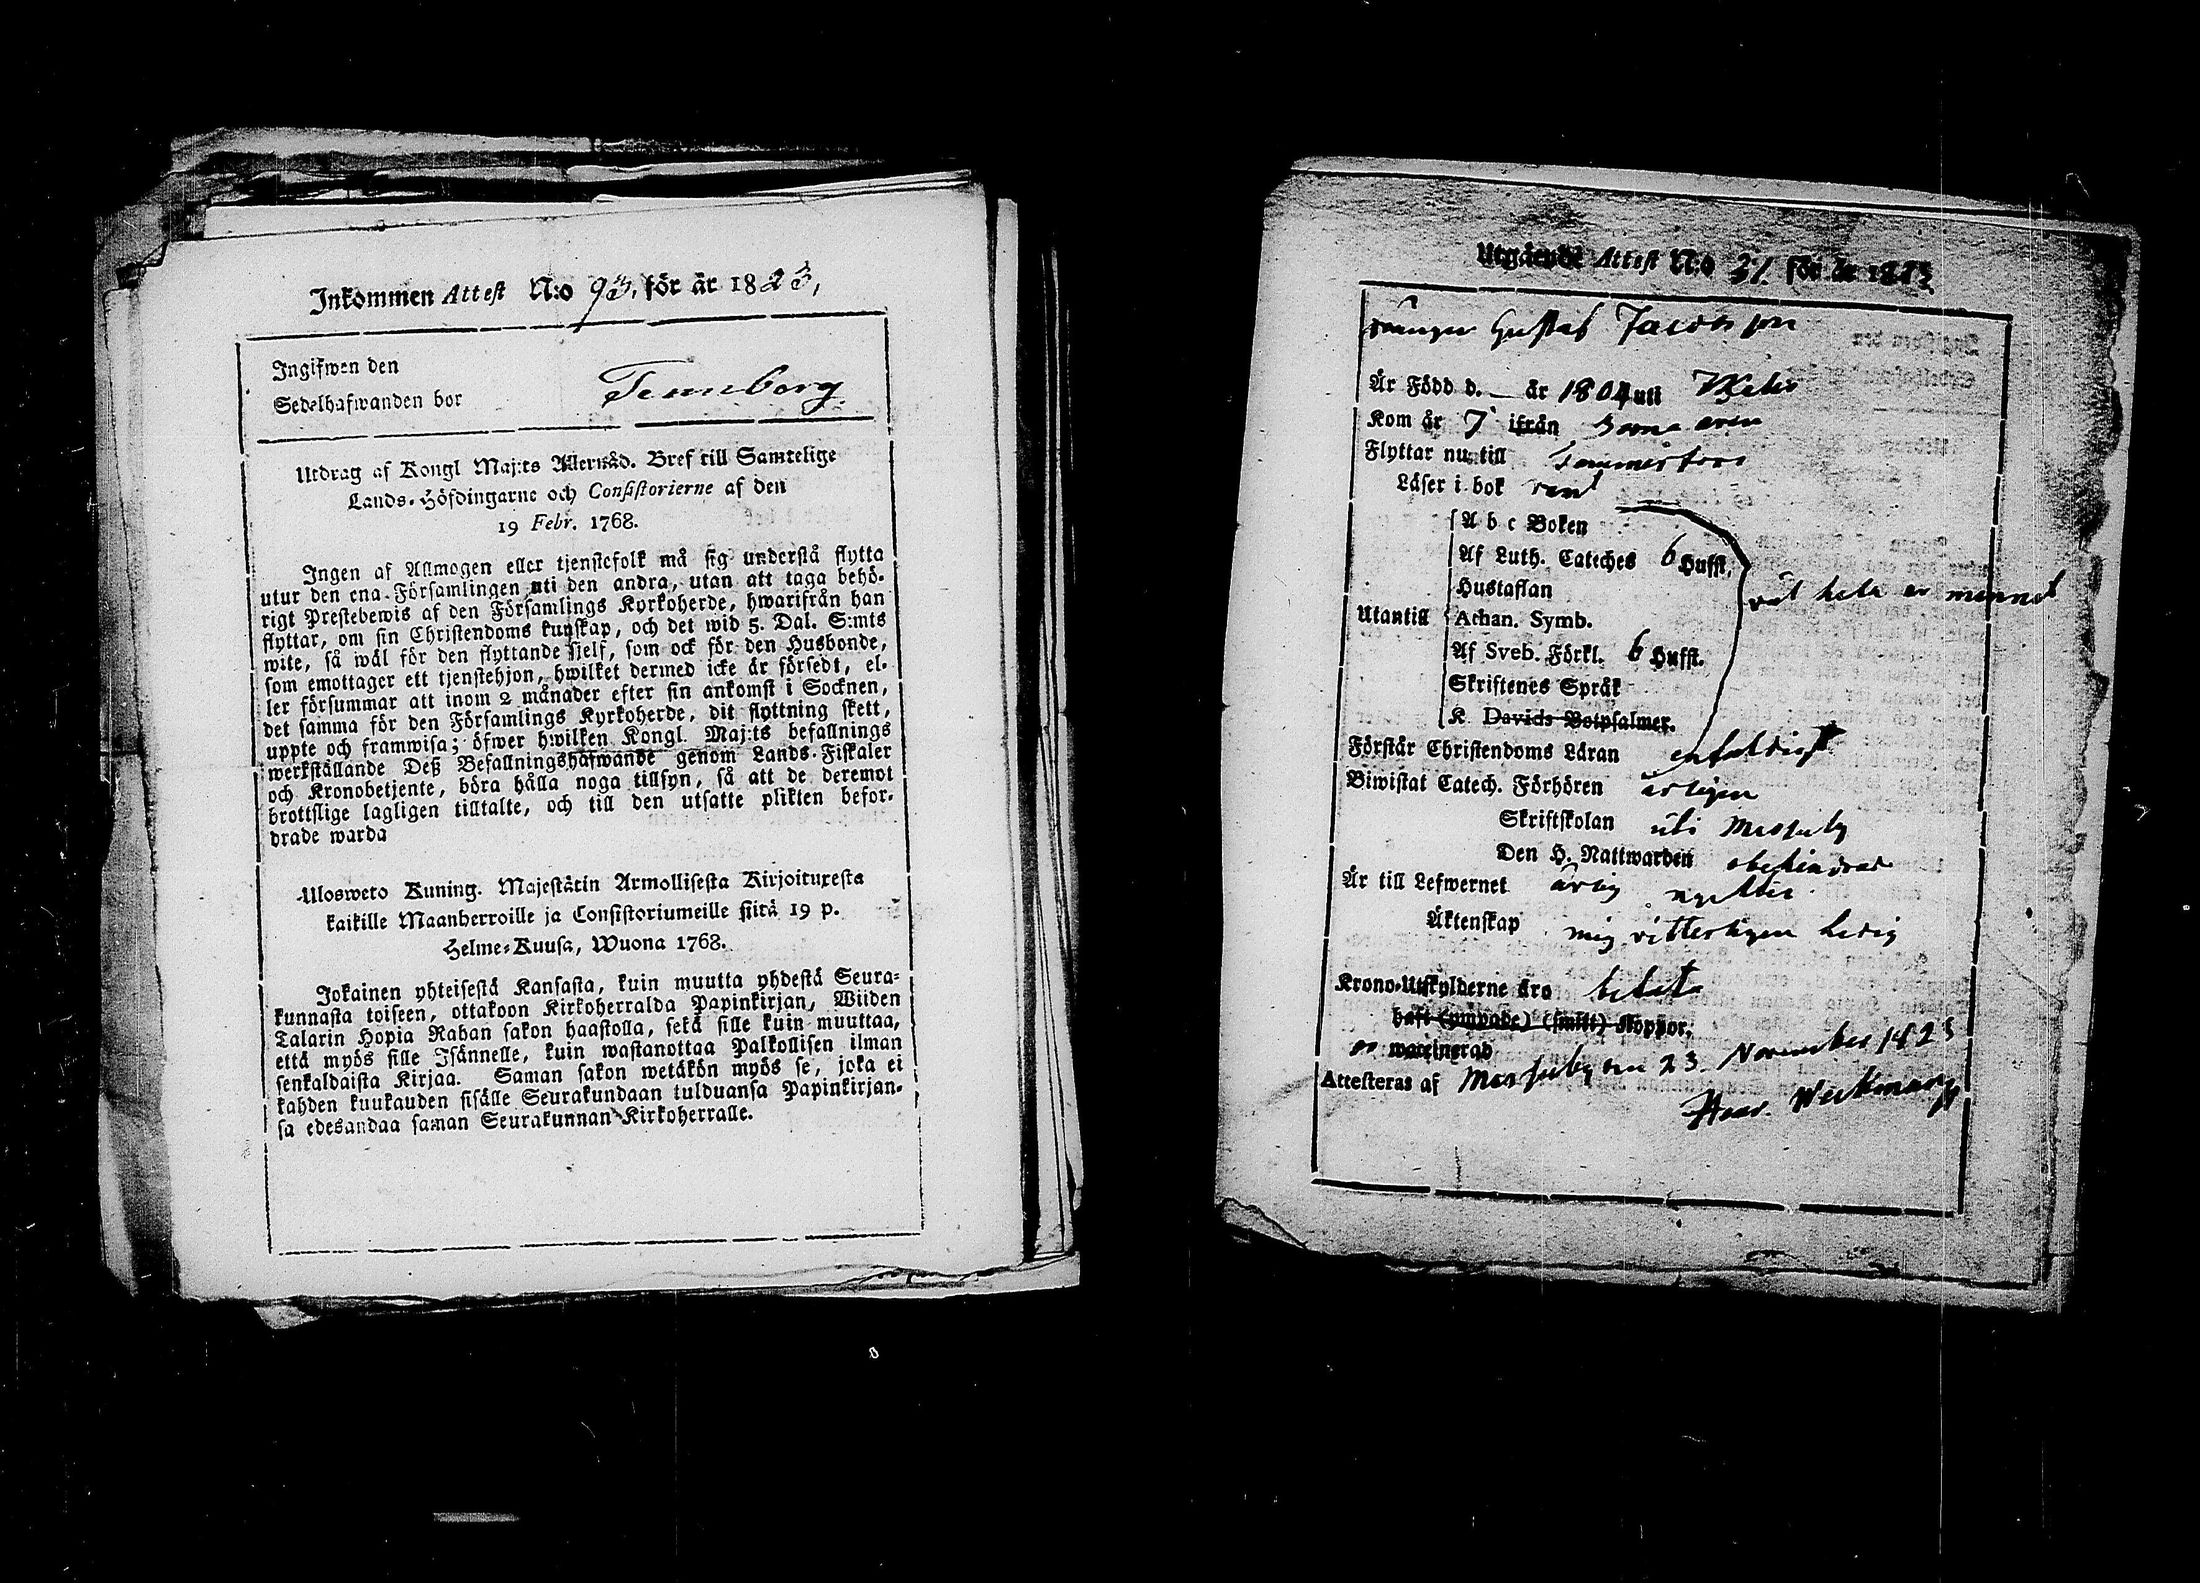 Inkommen Attest N:o 93. för år 1823,
Ingifwen den
Sedelhafwanden bor
Utdrag af Kongl Maj:ts Allernåd. Bref till Samtelige
Lands-Höfdingarne och Consistorierne af den
19 Febr. 1768.
Ingen af Allmogen eller tjenstefolk må sig understå flytta
utur den ena Församlingen uti den andra, utan att taga behö-
rigt Prestebewis af den Församlings Kyrkoherde, hwarifrån han
flyttar, om sin Christendoms kunskap, och det wid 5. Dal. S:mts
wite, så wäl för den flyttande sjelf, som ock för den Husbonde,
som emottager ett tjenstehjon, hwilket dermed icke är försedt, el-
ler försummar att inom 2 månader efter sin ankomst i Socknen,
det samma för den Församlings Kyrkoherde, dit flyttning skett,
uppte och framwisa; öfwer hwilken Kongl. Maj:ts befallnings
werkställande Deß Befallningshafwande genom Lands-Fiskaler
och Kronobetjente, böra hålla noga tillsyn, så att de deremot
brottslige lagligen tilltalte, och till den utsatte plikten befor-
drade warda
Ulosweto Kuning. Majestätin Armollisesta Kirjoituxesta
kaikille Maanherroille ja Consistoriumeille siitä 19 p.
Helme-Kuusa, Wuona 1768.
Jokainen yhteisestä Kansasta, kuin muutta yhdestä Seura-
kunnasta toiseen, ottakoon Kirkoherralda Papinkirjan, Wiiden
Talarin Hopia Rahan sakon haastolla, sekä sille kuin muuttaa,
että myös sille Isännelle, kuin wastanottaa Palkollisen ilman
senkaldaista Kirjaa. Saman sakon wetäkön myös se, joka ei
kahden kuukauden sisälle Seurakundaan tulduansa Papinkirjan-
sa edesandaa saman Seurakunnan Kirkoherralle.
Utgående Attest N:o 31. för år 1823
Gustaf Jacobsson
Är Född d. — år 1804 uti
Kom år ifrån
Flyttar nu till
Läser i bok rent
Abc Boken
Af Luth. Cateches 6 Hufst.
Hustaflan
Utantill Athan. Symb.
Af Sveb. Förkl. 6 Hufst.
Skriftenes Språk
K. Davids Botpsalmer.
Förstår Christendoms Läran enfaldigt
Biwistat Catech. Förhören årligen
Skriftskolan uti Messuby
Den H. Nattwarden obehindrad
Är till Lefwernet ärlig
Äktenskap mig vitterligen ledig
Krono-Utskylderne äro betalt
haft (ympade) (smitt) Koppor,
waccinerad
Attesteras af Messuby den 23 November 1823